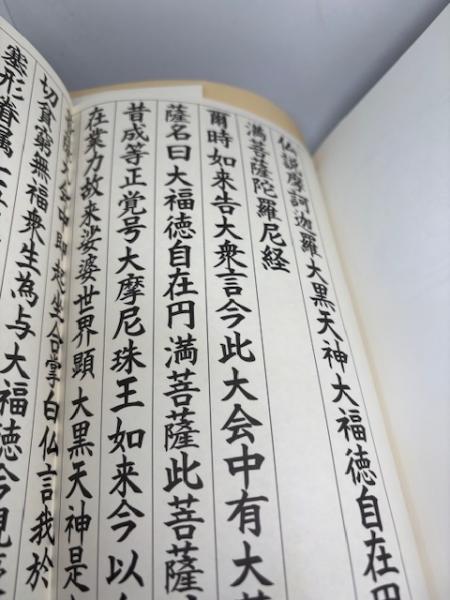 仏説摩訶迦羅大黒天神大福徳自在円
満菩薩陀羅尼経
爾時如来告大衆言今此大会中有大菩
薩名曰大福徳自在円満菩薩此菩薩
昔成等正覚号大摩尼珠王如来今以
在業力故来娑婆世界顕大黒天神是
菩薩大会中即起坐合掌白仏言我於
切貧窮無福衆生為与大福徳今現
塞形眷属